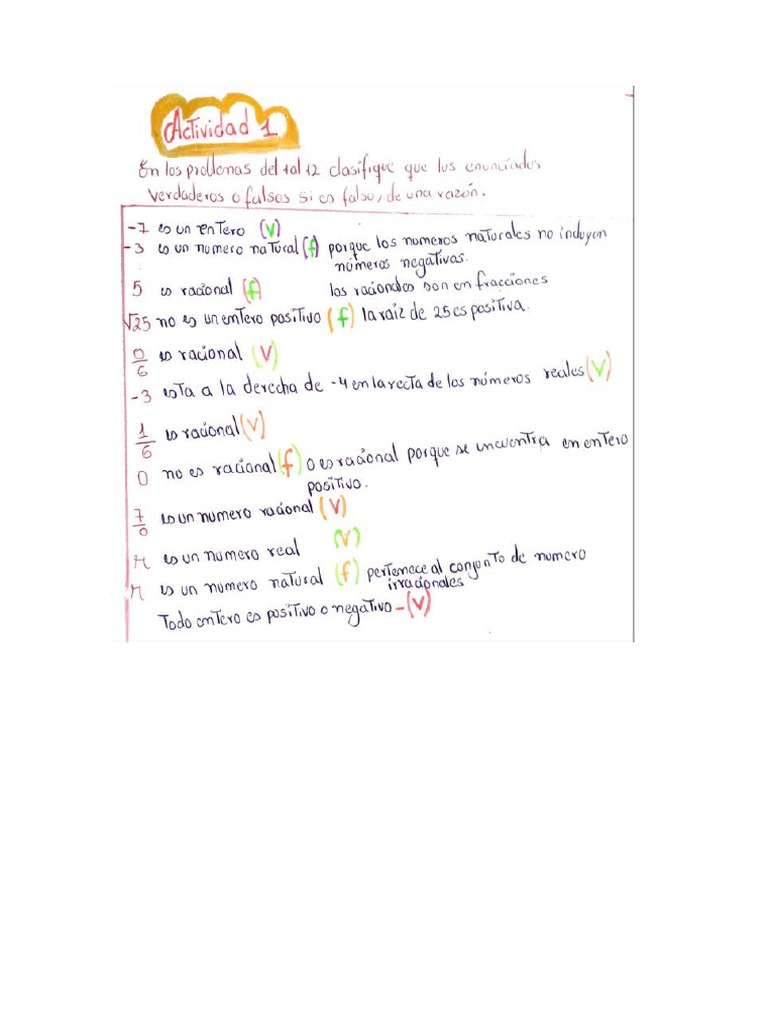 Actividad 1
En los problemas del 1 al 12 clasifique que los enunciados
verdaderos o falsos si es falso, de una razón.
-7 es un entero (v)
-3 es un numero natural (f) porque los numeros naturales no incluyen
números negativas.
5 es racional (f) los racionales son en fracciones
√25 no es un entero positivo (f) la raíz de 25 es positiva.
0/6 es racional (v)
-3 esta a la derecha de -4 en la recta de los números reales (v)
1/6 es racional (v)
0 no es racional (f) 0 es racional porque se encuentra en entero
positivo.
7/0 es un numero racional (v)
π es un numero real (v)
π es un numero natural (f) pertenece al conjunto de numero
irracionales
Todo entero es positivo o negativo - (v)